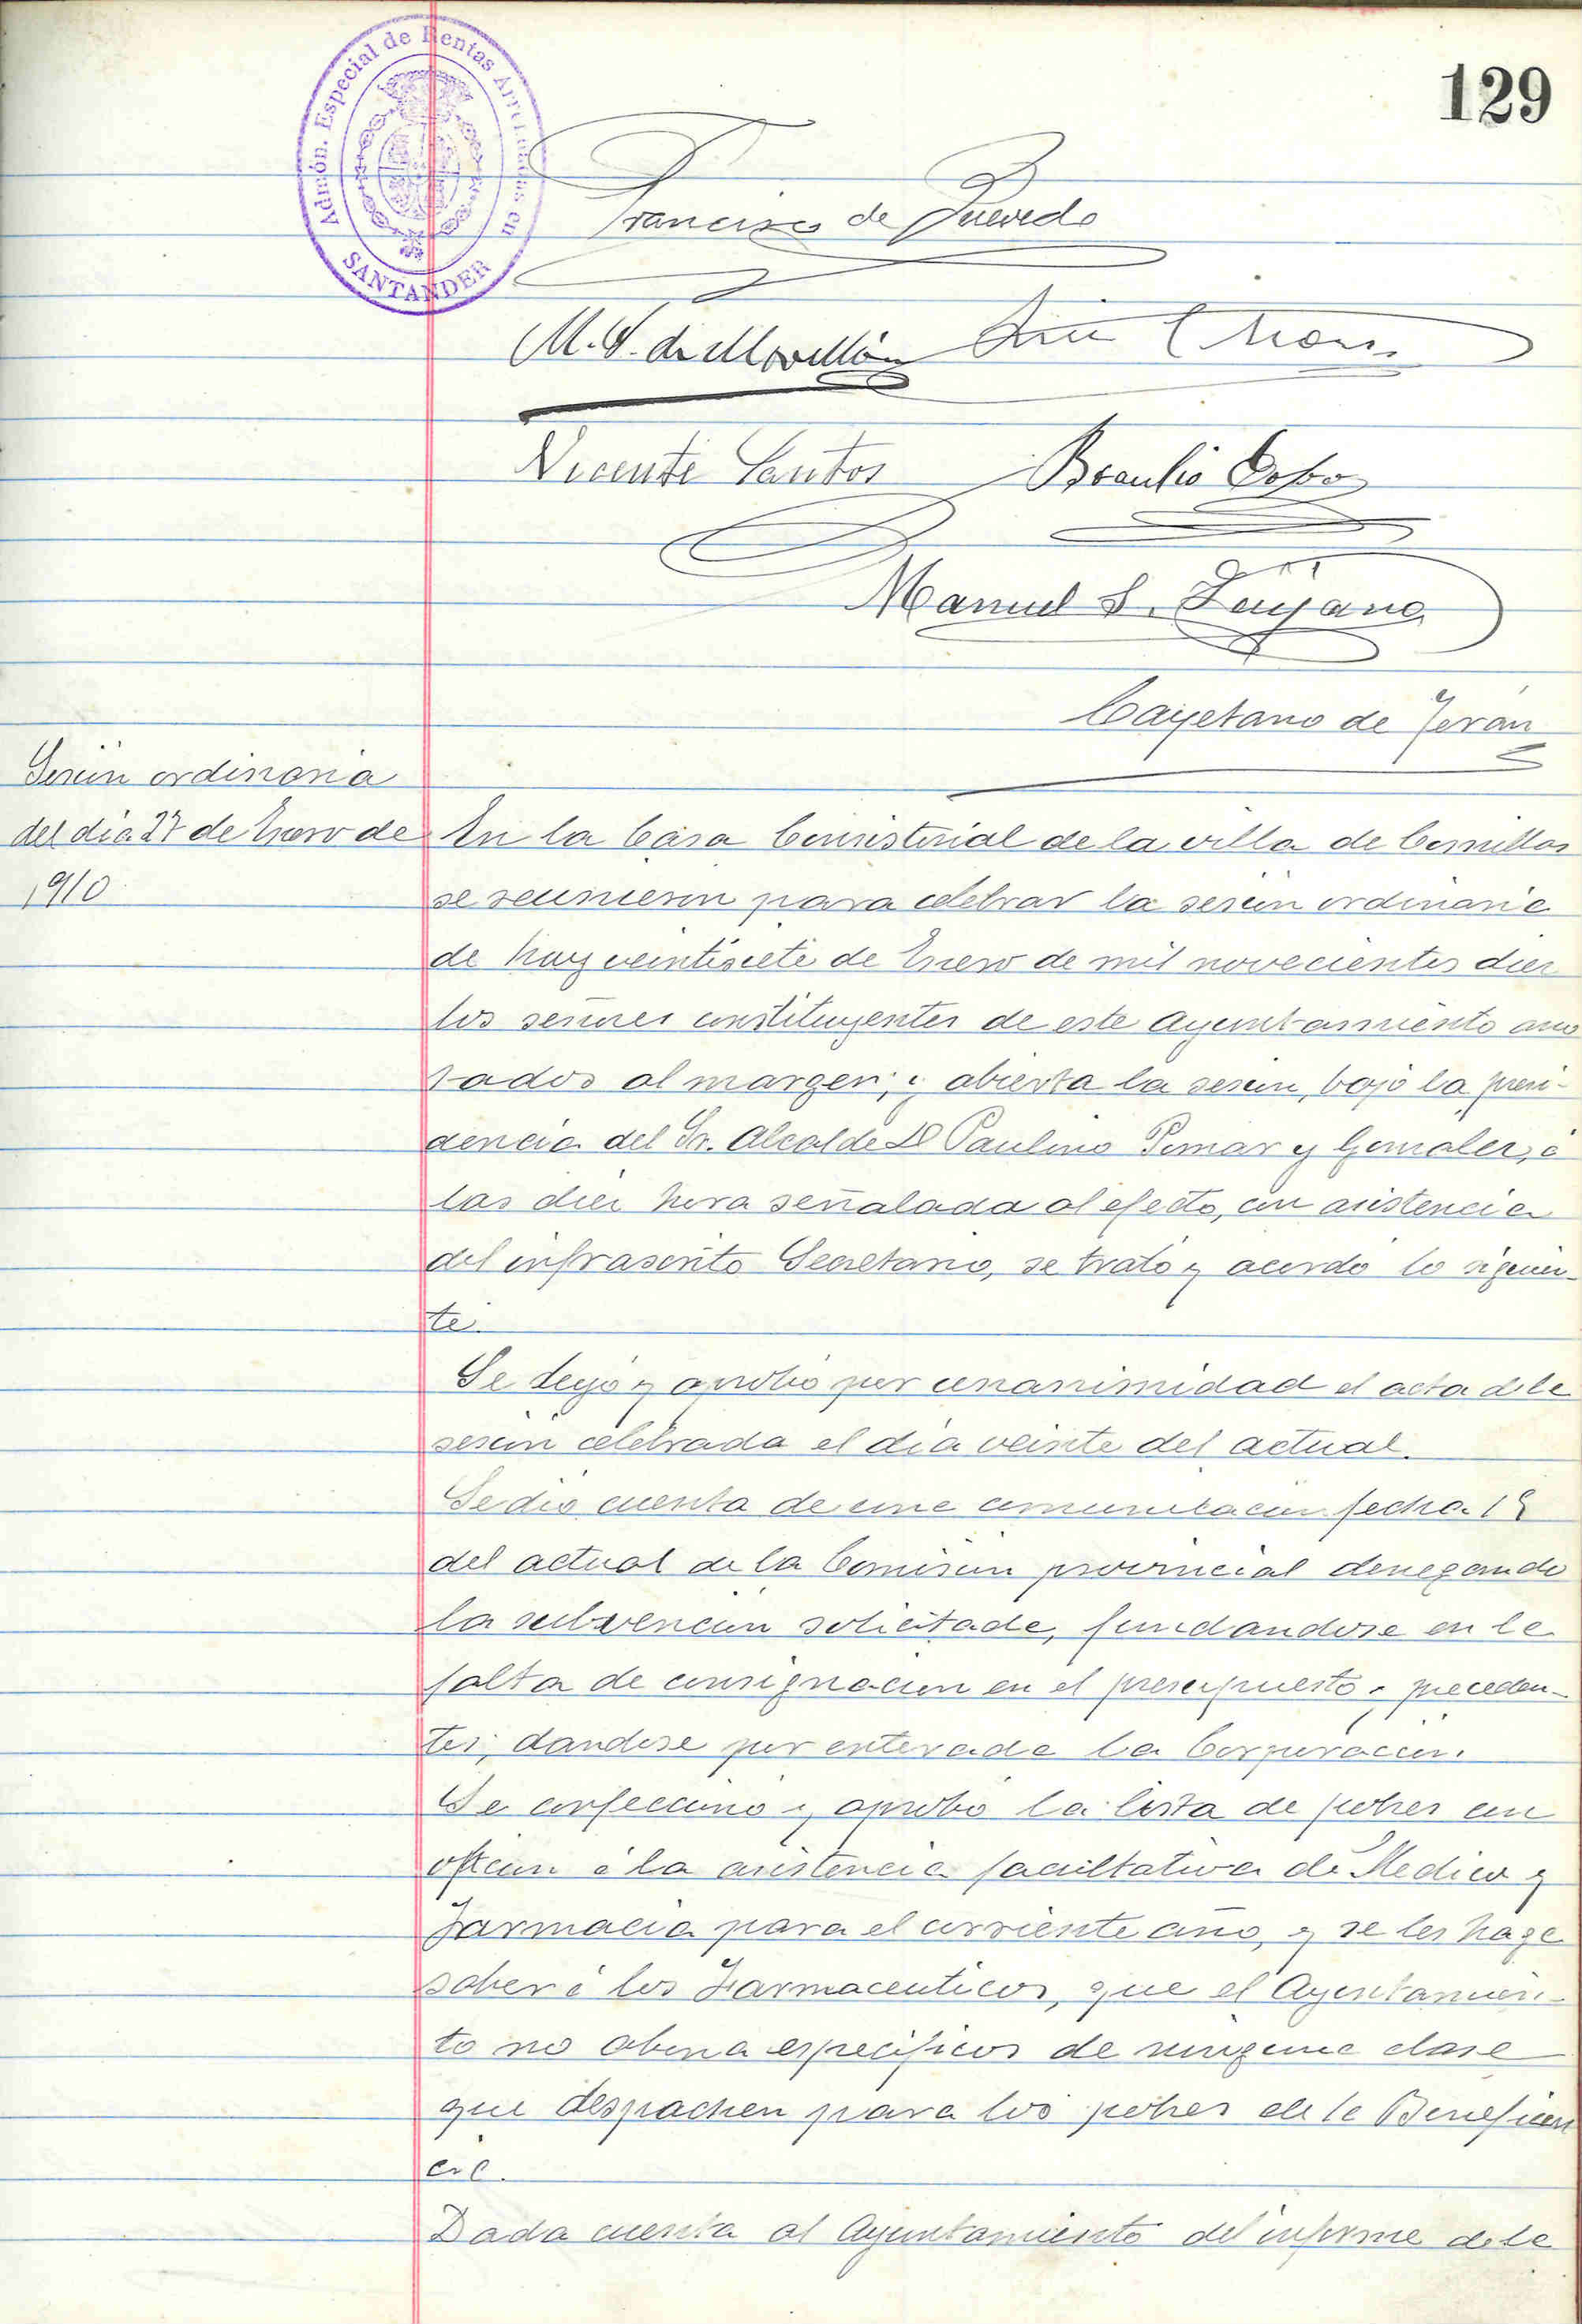 129
Admón. Especial de Rentas Arrendadas en
SANTANDER
Francisco de Quevedo
M. S. de Movellán
Vicente Santos Braulio Cobo
Manuel S. Quijano
Cayetano de Terán
Sesión ordinaria
del dia 27 de Enero de
1910
En la Casa Consistorial de la villa de Comillas
se reunieron para celebrar la sesión ordinaria
de hoy veintisiete de Enero de mil novecientos diez
los señores constituyentes de este Ayuntamiento ano
tados al margen; y abierta la sesion, bajo la presi-
dencia del Sr. Alcalde D Paulino Pomar y Gonzalez, á
las diez hora señalada al efecto, con asistencia
del infrascrito Secretario, se trató y acordó lo siguien-
te.
Se leyó y aprobó por unanimidad el acta de la
sesión celebrada el día veinte del actual.
Se dio cuenta de una comunicacion fecha 19
del actual de la Comision provincial denegando
la subvencion solicitada, fundandose en la
falta de consignacion en el presupuesto y preceden-
tes; dandose por enterada la Corporacion.
Se confeccionó y aprobó la lista de pobres con
opcion á la asistencia facultativa de Medico y
Farmacia para el corriente año, y se les haga
saber á los Farmaceuticos, que el Ayuntamien-
to no abona especificos de ninguna clase
que despachen para los pobres de la Beneficen
cia.
Dada cuenta al Ayuntamiento del informe de la